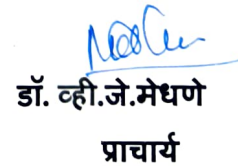 डॉ. व्ही.जे.मेधणे
प्राचार्य